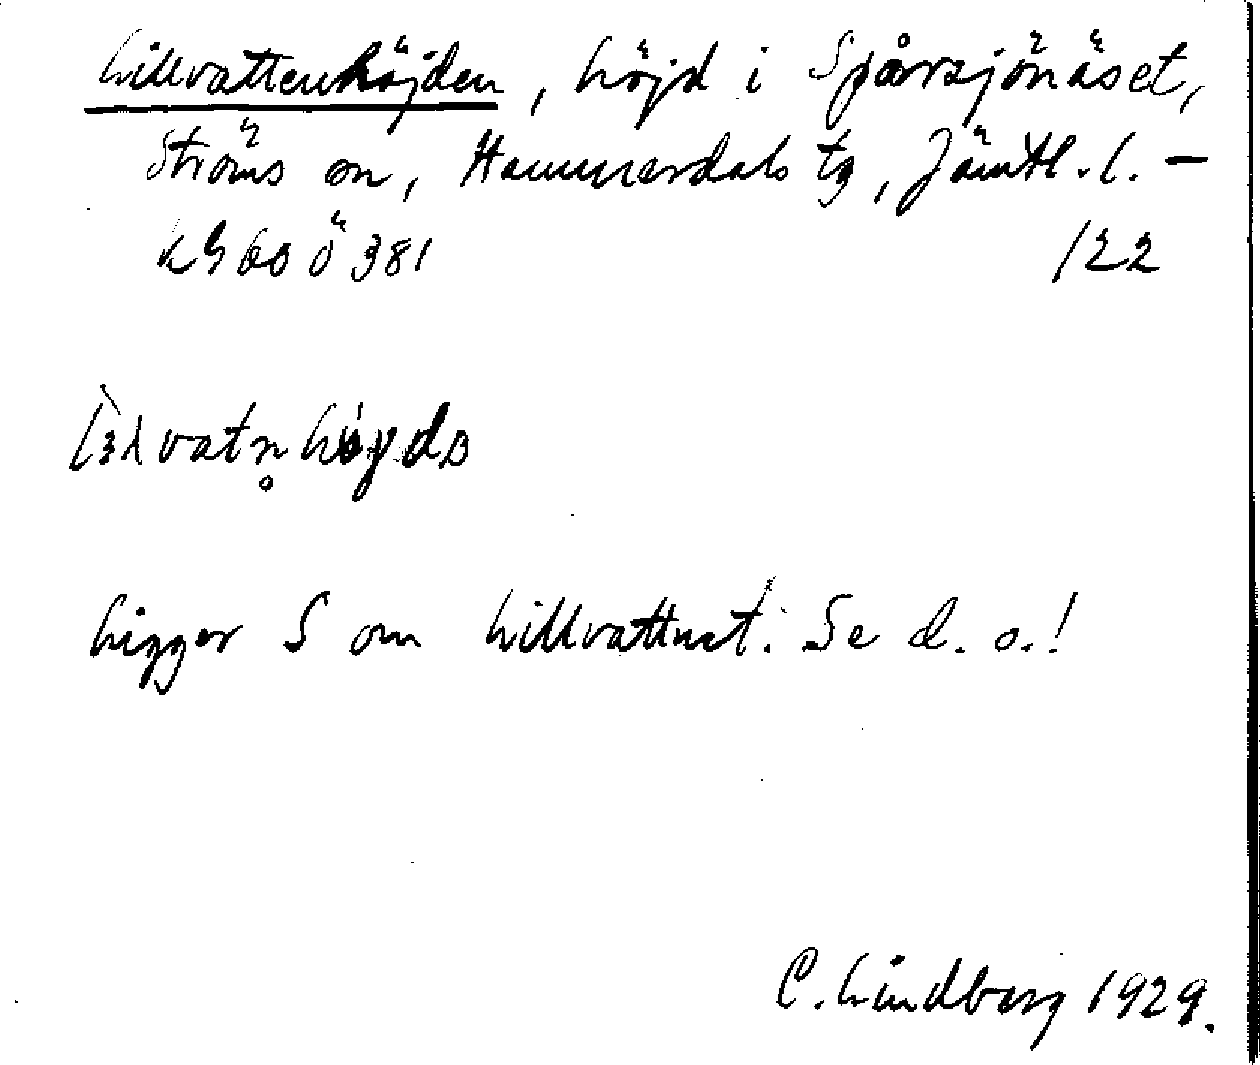 Lillvattenhöjden, höjd i Spårsjönäset,
Ströms sn, Hammerdals tg, Jämtl. l. —
KG 60 Ö 381 /22
vatn̥
Ligger S om Lillvattnet. Se d. o.!
C. Lindberg 1929.